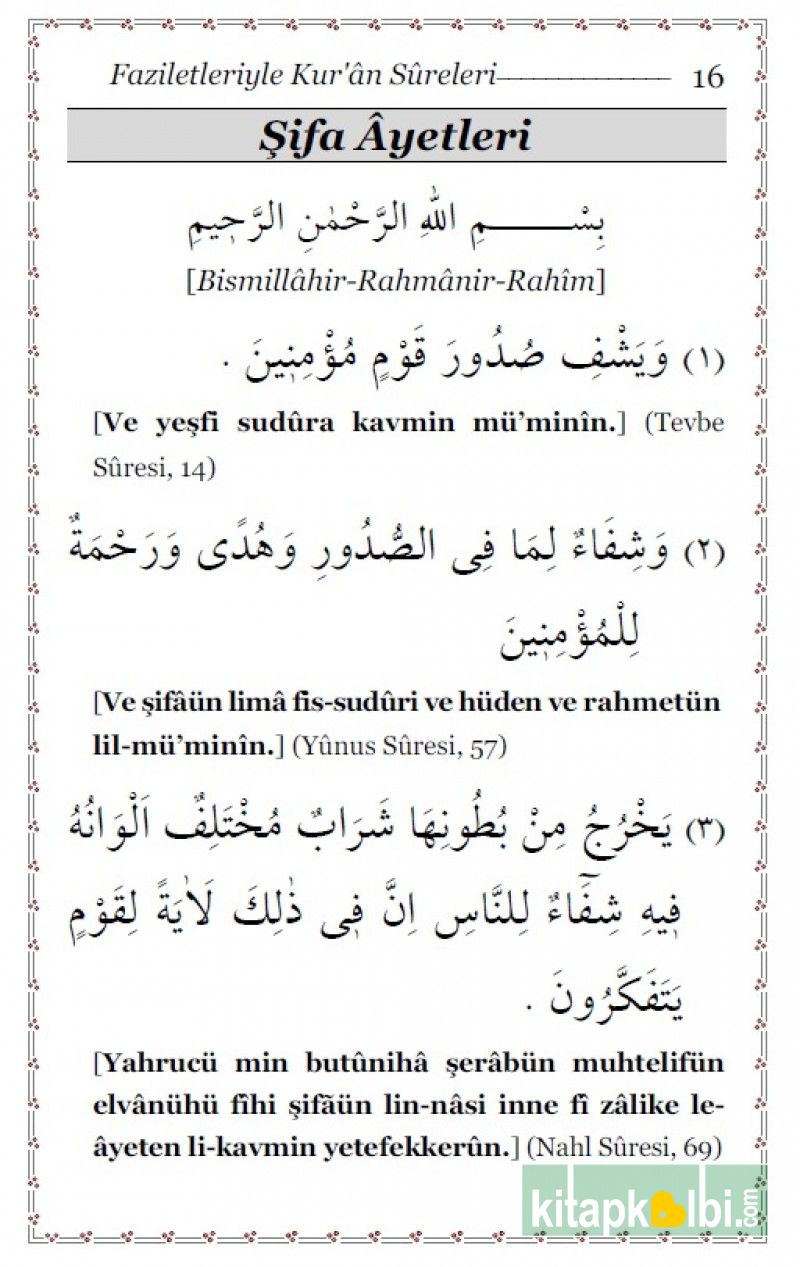 Faziletleriyle Kur'ân Sûreleri 16
Şifa Âyetleri
بِسْمِ اللهِ الرَّحْمٰنِ الرَّحِيمِ
[Bismillâhir-Rahmânir-Rahîm]
(١) وَيَشْفِ صُدُورَ قَوْمٍ مُؤْمِنِينَ .
[Ve yeşfi sudûra kavmin mü’minîn.] (Tevbe
Sûresi, 14)
(٢) وَشِفَاءٌ لِمَا فِى الصُّدُورِ وَهُدًى وَرَحْمَةٌ
لِلْمُؤْمِنِينَ
[Ve şifâün limâ fis-sudûri ve hüden ve rahmetün
lil-mü’minîn.] (Yûnus Sûresi, 57)
(٣) يَخْرُجُ مِنْ بُطُونِهَا شَرَابٌ مُخْتَلِفٌ اَلْوَانُهُ
فِيهِ شِفَٓاءٌ لِلنَّاسِ اِنَّ فِى ذٰلِكَ لَاٰيَةً لِقَوْمٍ
يَتَفَكَّرُونَ .
[Yahrucü min butûnihâ şerâbün muhtelifün
elvânühü fîhi şifãün lin-nâsi inne fî zâlike le-
âyeten li-kavmin yetefekkerûn.] (Nahl Sûresi, 69)
kitapkalbi.com